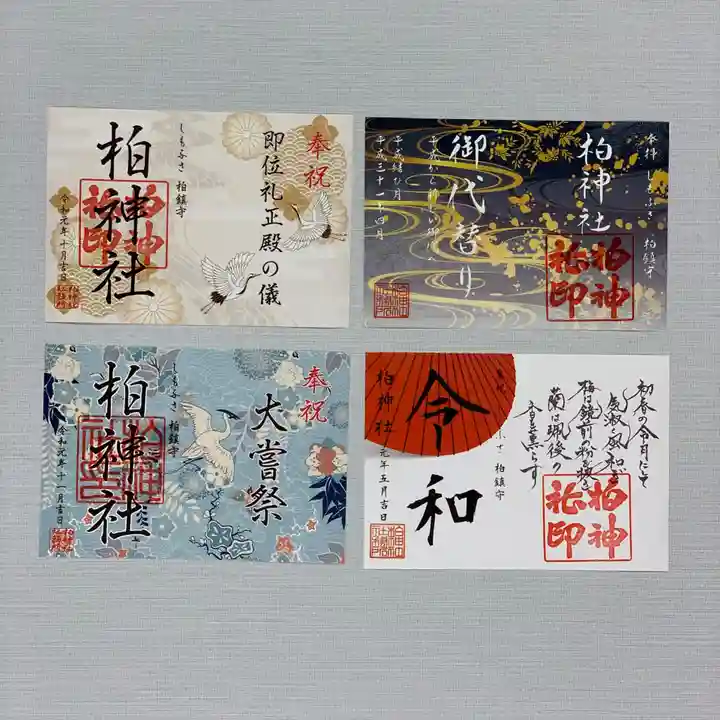 奉祝
即位礼正殿の儀
しもふさ 柏鎮守
柏神社
柏神社印
令和元年十月吉日
奉拝 しもふさ 柏鎮守
柏神社
柏神社印
御代替り
平成から新しい御代へ
平成結び月
平成三十一年四月
奉祝
大嘗祭
しもふさ 柏鎮守
柏神社
令和元年十一月吉日
初春の令月にして
気淑く風和ぎ
梅は鏡前の粉を披き
蘭は珮後の
香を薫らす
柏神社印
柏鎮守
令和
元年五月吉日
柏神社